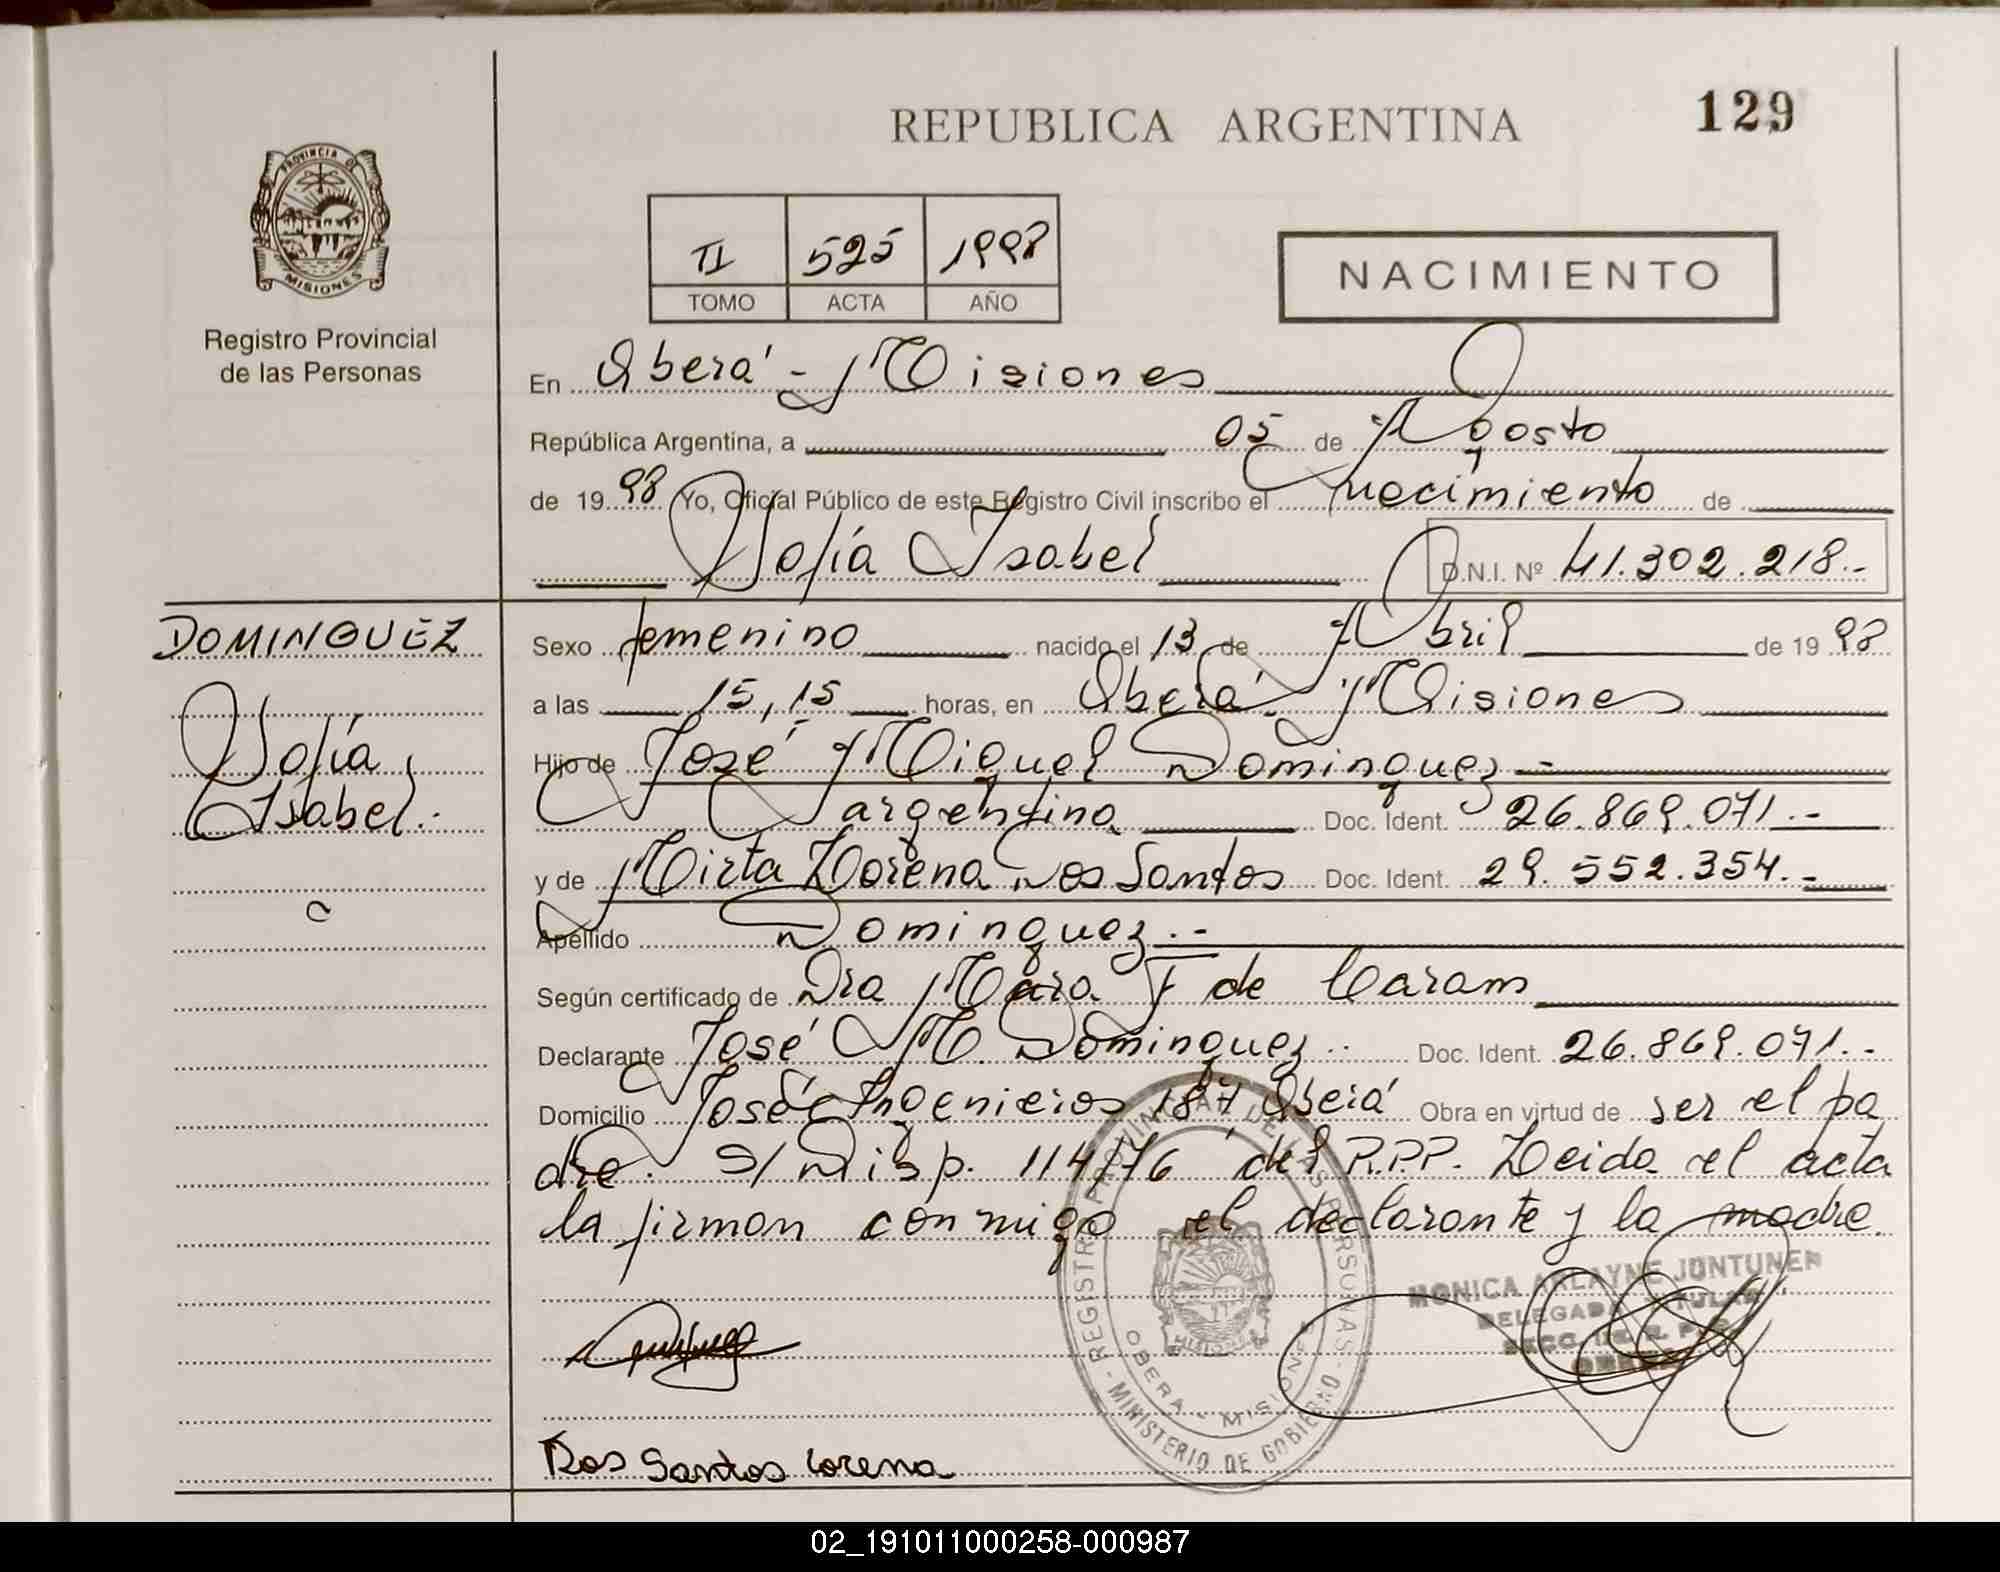 REPUBLICA ARGENTINA
129
PROVINCIA DE
MISIONES
Registro Provincial
de las Personas
II 525 1998
TOMO ACTA AÑO
NACIMIENTO
En Oberá - Misiones
República Argentina, a 05 de Agosto
de 1998 Yo, Oficial Público de este Registro Civil inscribo el nacimiento de
Sofía Isabel D.N.I. Nº 41.302.218.-
DOMINGUEZ
Sofía
Isabel.-
Sexo femenino nacido el 13 de Abril de 1998
a las 15,15 horas, en Oberá - Misiones
Hijo de José Miguel Dominguez -
argentina Doc. Ident. 26.869.071.-
y de Mirta Lorena Dos Santos Doc. Ident. 29.552.354.-
Apellido Dominguez.-
Según certificado de Dra Mara F de Caram
Declarante José M. Dominguez.. Doc. Ident. 26.869.071.-
Domicilio José Ingenieros 187 Oberá Obra en virtud de ser el pa
dre. S/ Disp. 114/76 del R.P.P. Leida el acta
la firman conmigo el declarante y la madre.
REGISTRO PROVINCIAL DE LAS PERSONAS - MINISTERIO DE GOBIERNO
OBERA - MISIONES
MONICA ARLAYNE JUNTUNEN
DELEGADA TITULAR
Dos Santos Lorena
02_191011000258-000987